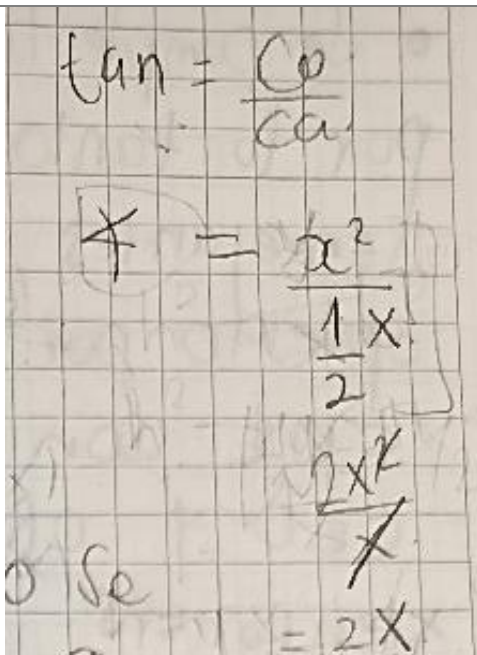 tan = Co/ca
4 = x²/(1/2 x)
2x²/x
o Se
= 2x